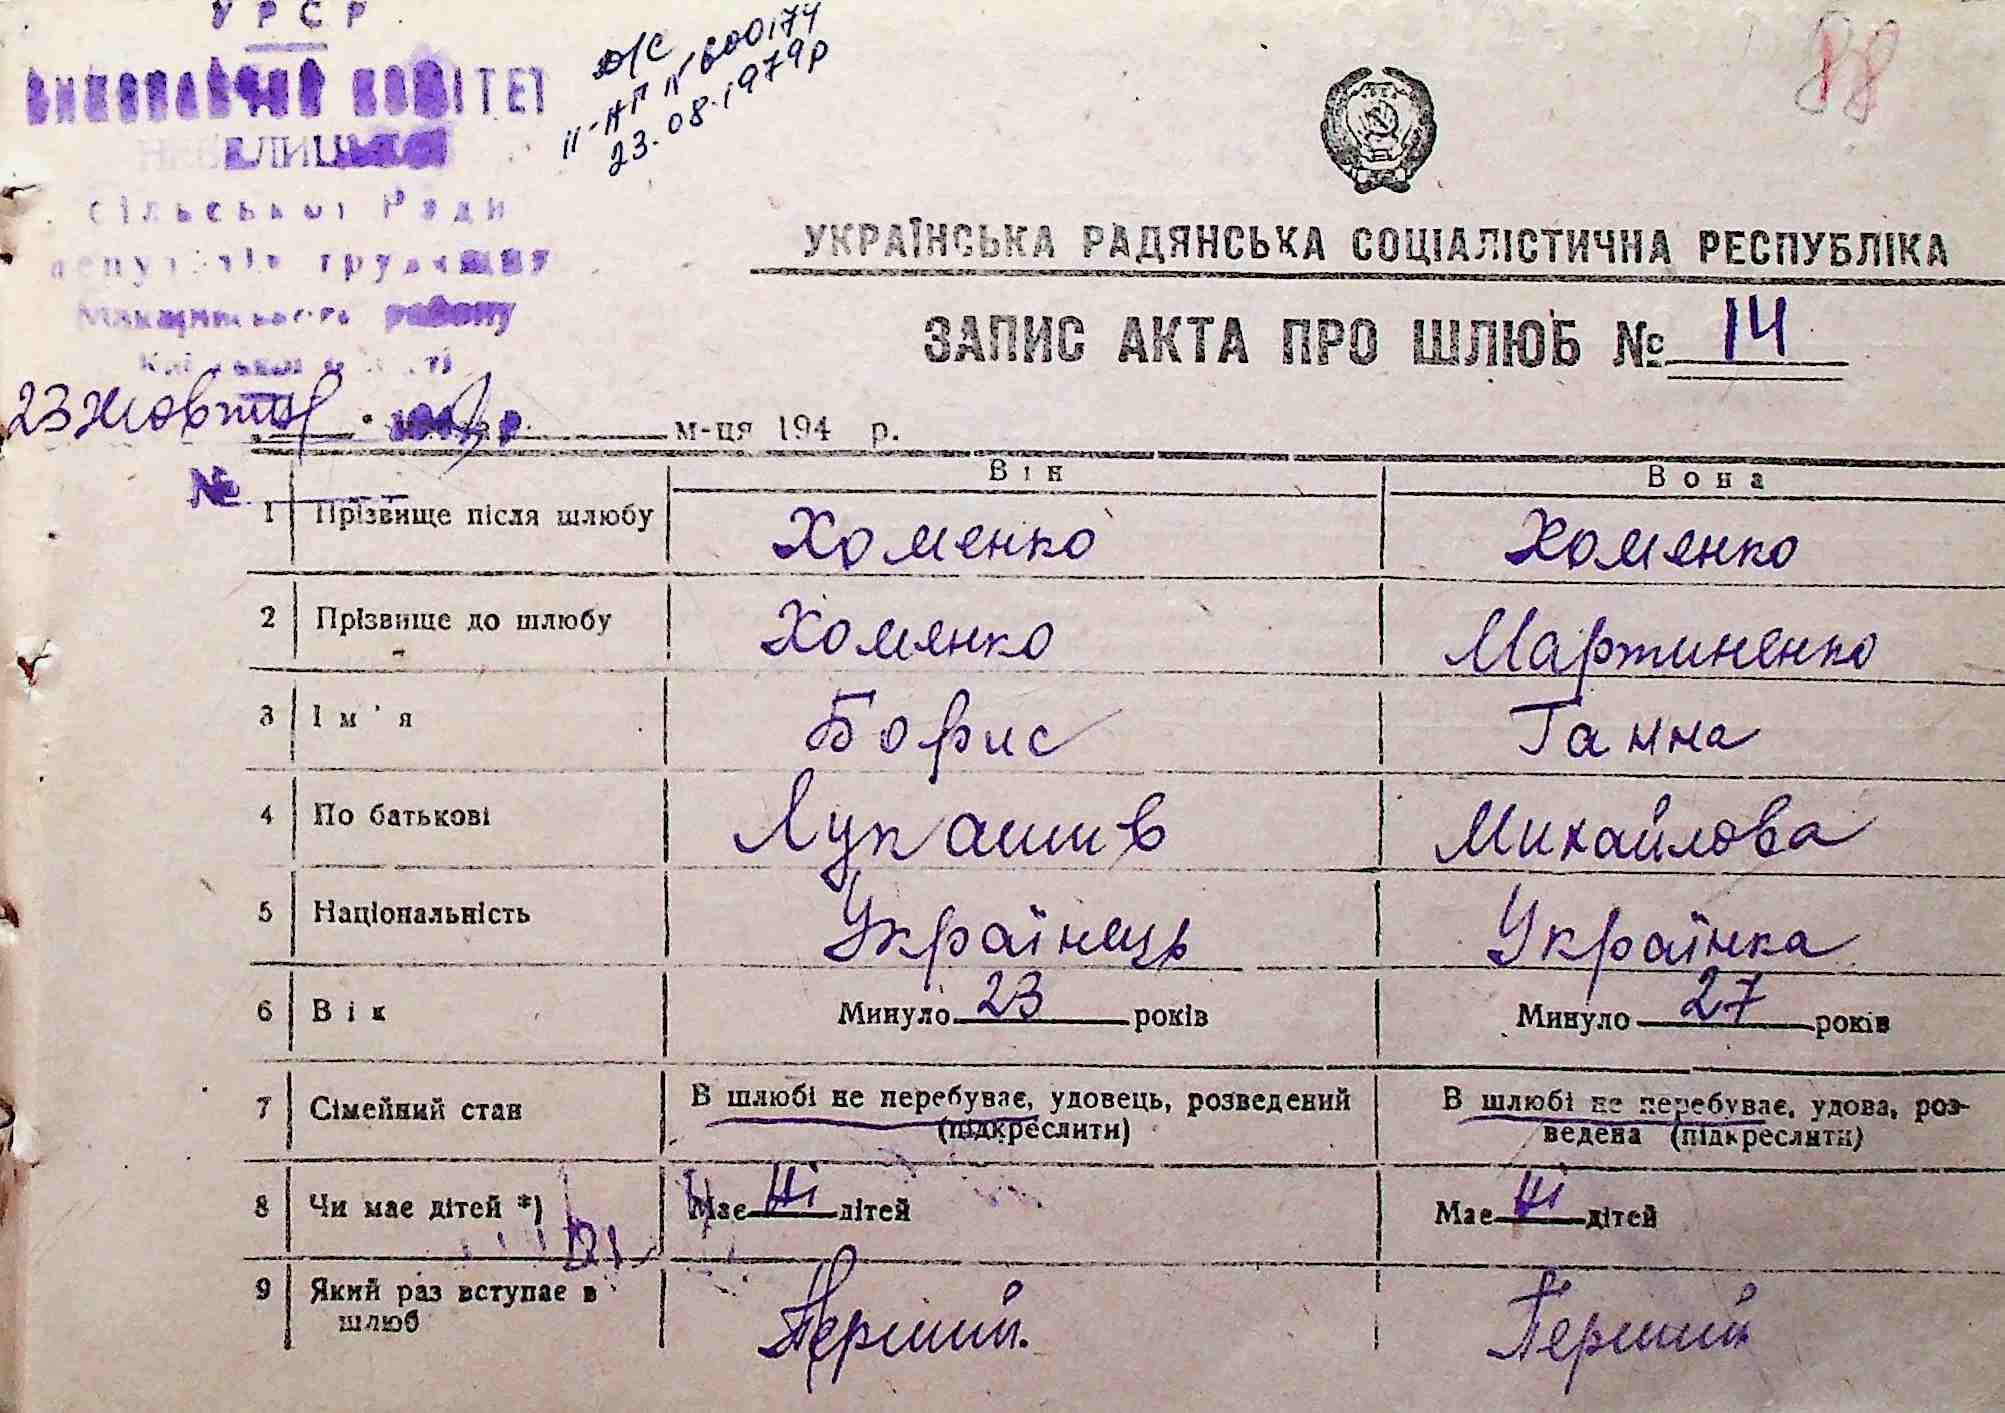 УРСР
ВИКОНАВЧИЙ КОМІТЕТ
сільської Ради
депутатів трудящих
Макарівського району
Д/С
ІІ-НП № 600174
23.08.1979р
88
УКРАЇНСЬКА РАДЯНСЬКА СОЦІАЛІСТИЧНА РЕСПУБЛІКА
ЗАПИС АКТА ПРО ШЛЮБ № 14
23 жовтня м-ця 194 р.
№
Він Вона
1 Прізвище після шлюбу Хоменко Хоменко
2 Прізвище до шлюбу Хоменко Мартиненко
3 Ім'я Борис Ганна
4 По батькові Лукашив Михайлова
5 Національність Українець Українка
6 Вік Минуло 23 років Минуло 27 років
7 Сімейний стан В шлюбі не перебуває, удовець, розведений В шлюбі не перебуває, удова, роз-
(підкреслити) ведена (підкреслити)
8 Чи має дітей *) Має ні дітей Має ні дітей
9 Який раз вступає в Перший Перший
шлюб